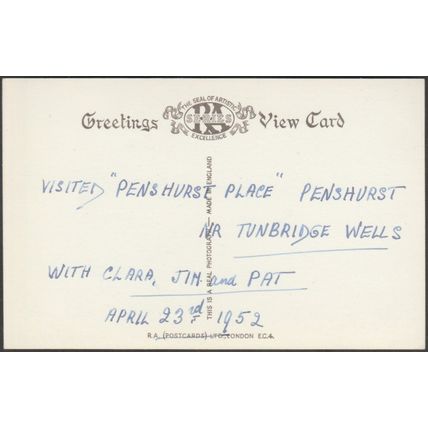 THE SEAL OF ARTISTIC
Greetings RA SERIES View Card
EXCELLENCE
VISITED "PENSHURST PLACE" PENSHURST
NR TUNBRIDGE WELLS
WITH CLARA, JIM and PAT
APRIL 23rd 1952
THIS IS A REAL PHOTOGRAPH — MADE IN ENGLAND
R.A. (POSTCARDS) LTD., LONDON E.C.4.